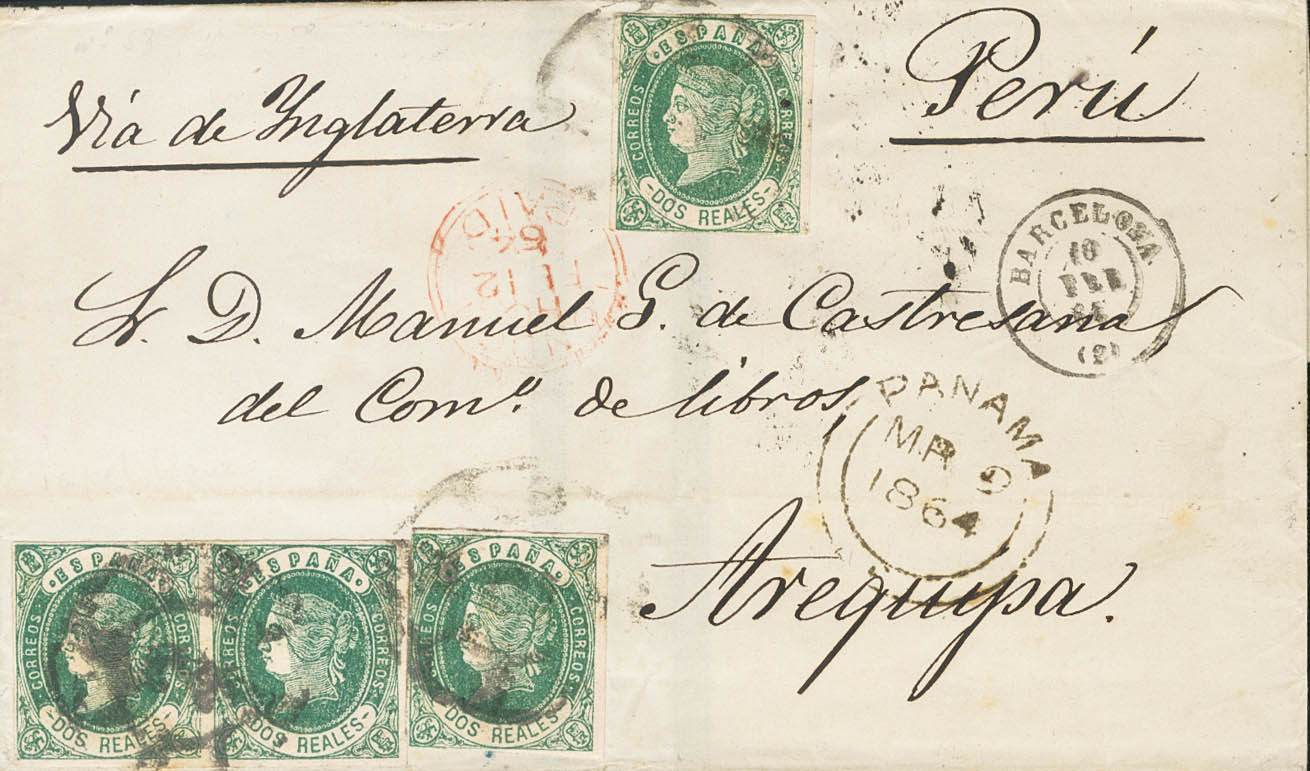 Vía de Inglaterra
Perú
·ESPAÑA·
CORREOS
CORREOS
-DOS REALES-
PAID
64
12
BARCELONA
10
FEB
(2)
S. D. Manuel G. de Castresana
del Com.º de libros,
PANAMA
MR 9
1864
Arequipa.
·ESPAÑA·
CORREOS
CORREOS
-DOS REALES-
·ESPAÑA·
CORREOS
CORREOS
-DOS REALES-
·ESPAÑA·
CORREOS
CORREOS
-DOS REALES-